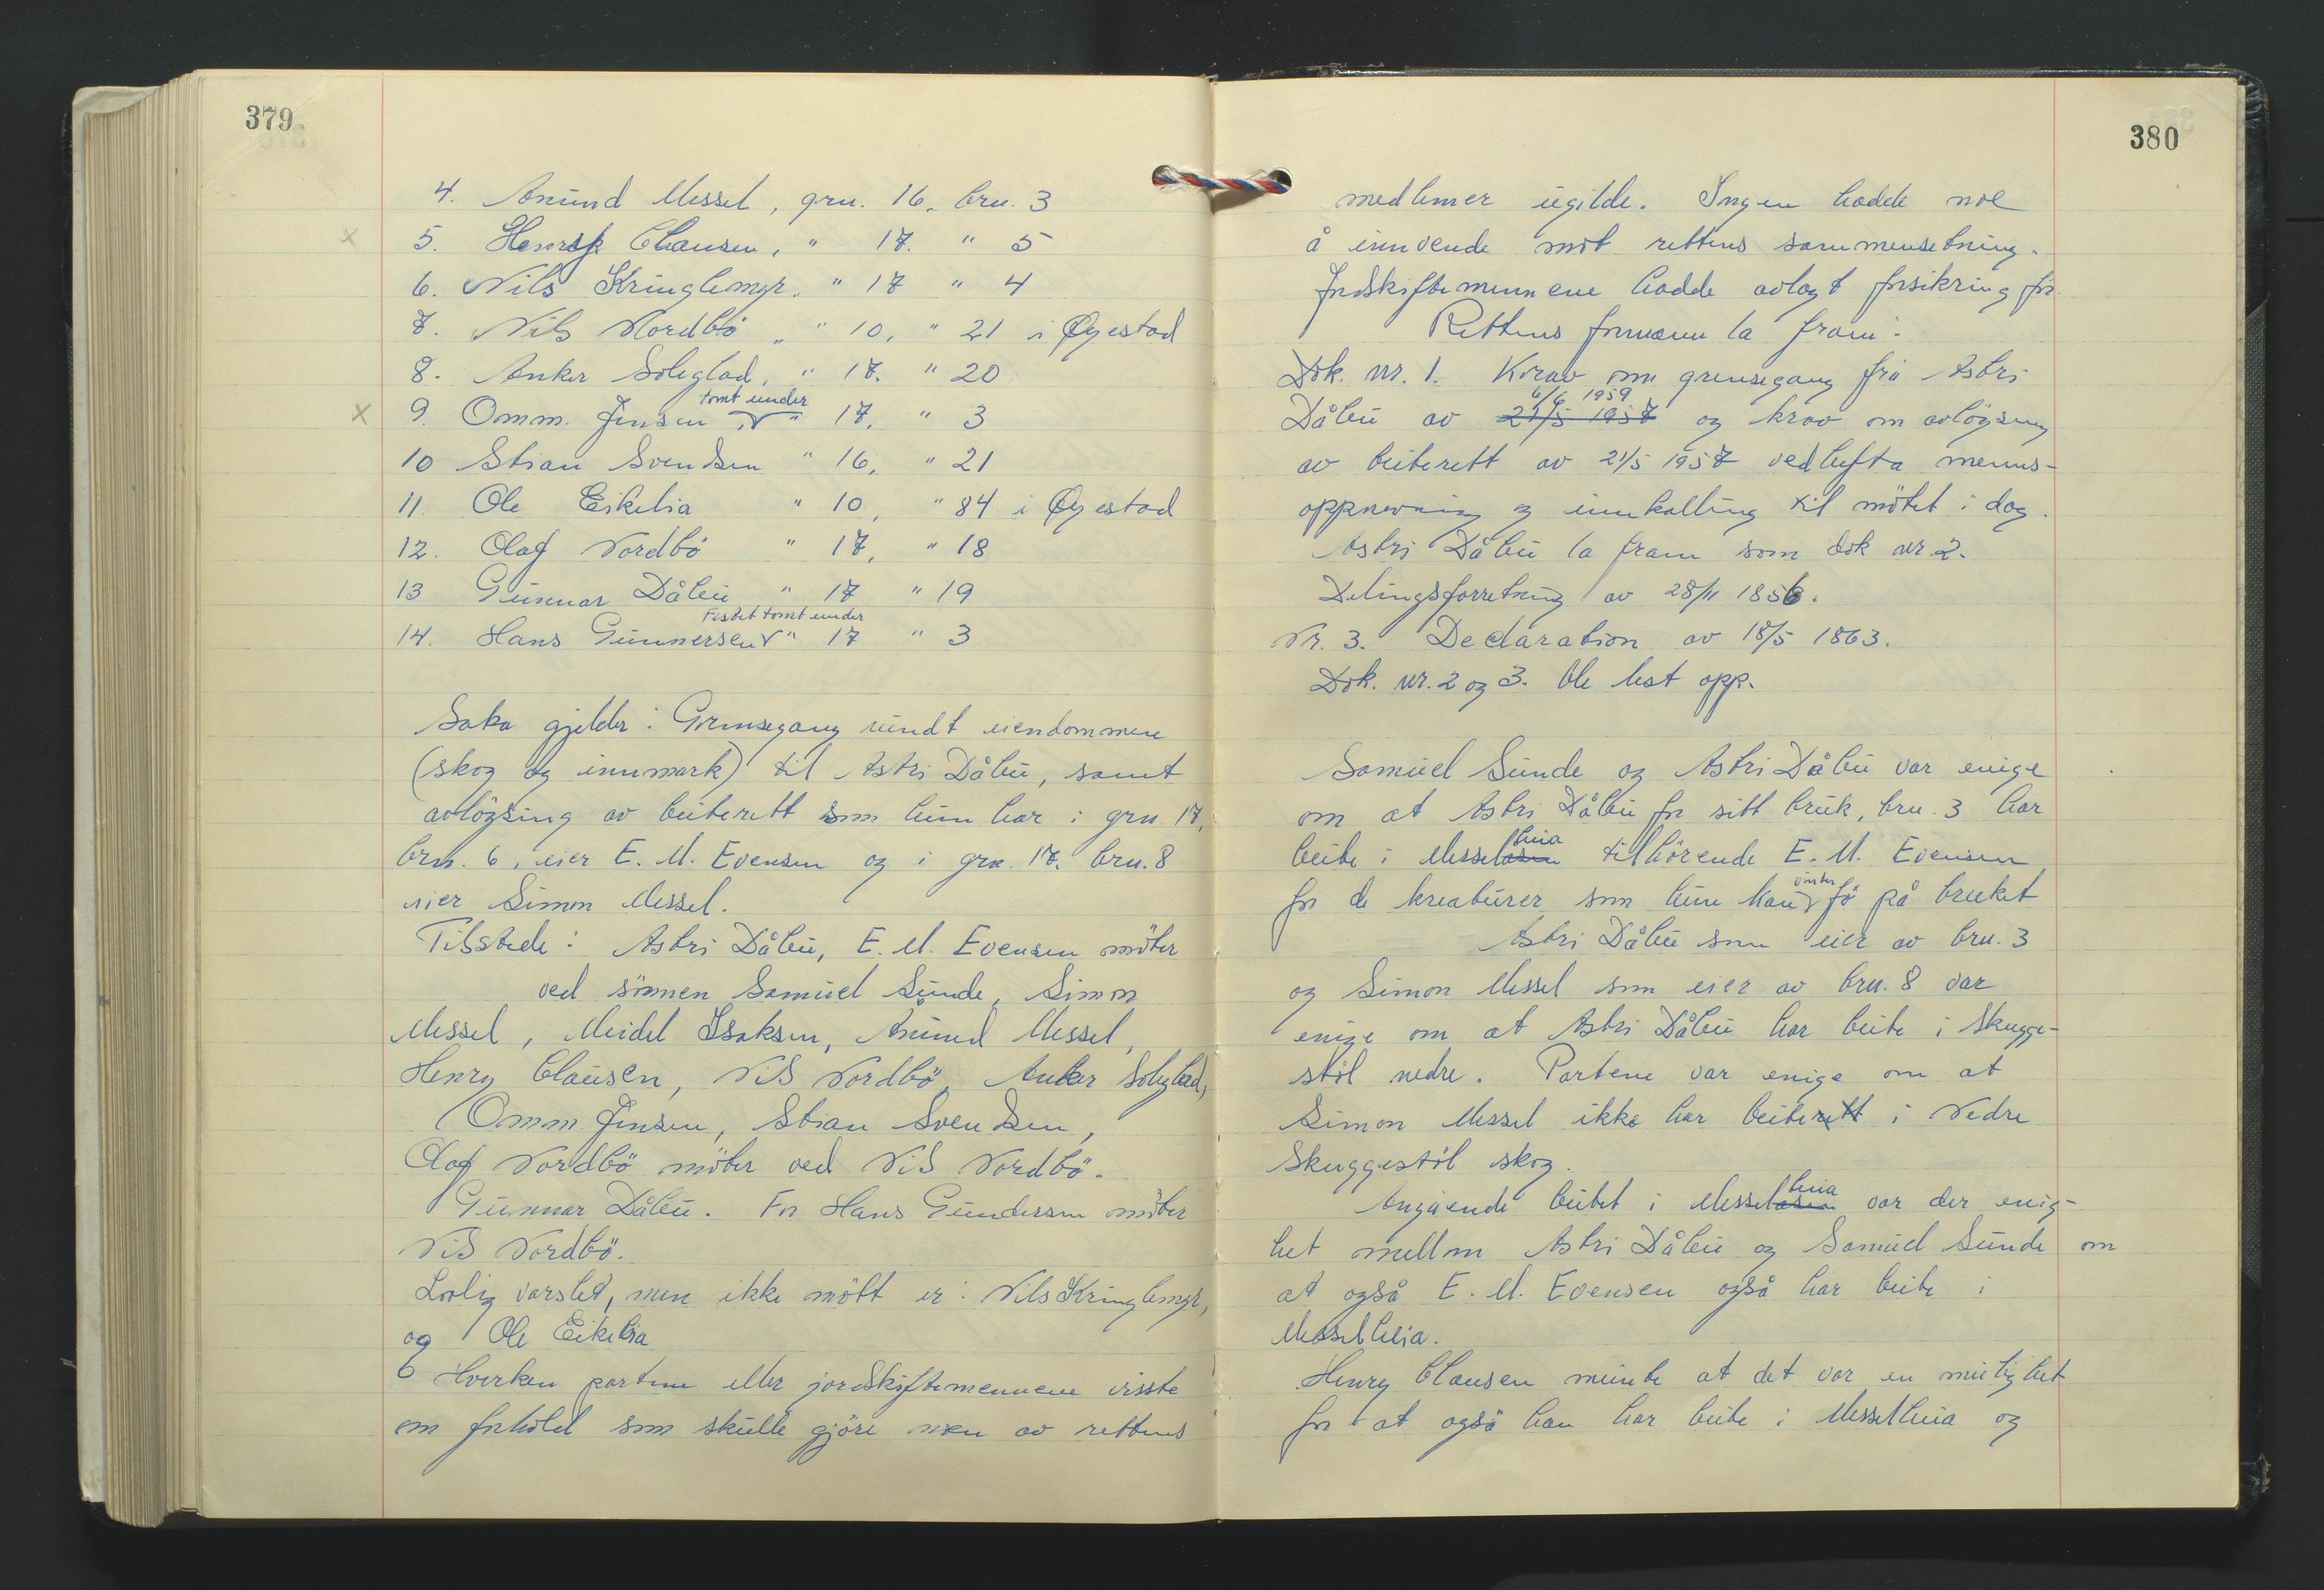 379
4. Anund Messel, gnr. 16, bnr. 3
x 5. Henry Clausen, " 17. " 5
6. Nils Kringlemyr, " 17 " 4
7. Nils Nordbö, " 10, " 21 i Øyestad
8. Anker Soleglad, " 17. " 20
tomt under
x 9. Omm. Jensen " 17, " 3
10 Stian Svendsen " 16, " 21
11. Ole Eikelia " 10, " 84 i Øyestad
12. Olaf Nordbö " 17, " 18
13 Gunnar Dåbu " 17 " 19
Festet tomt under
14. Hans Gunnersen " 17 " 3
Saka gjelder: Grensegang rundt eiendommene
(skog og innmark) til Astri Dåbu, samt
avlöysing av beiterett som hun har i gnr. 17,
bnr. 6, eier E. M. Evensen og i gnr. 17. bnr. 8
eier Simon Messel.
Tilstede: Astri Dåbu, E. M. Evensen möter
ved sönnen Samuel Sunde, Simon
Messel, Meidel Isaksen, Anund Messel,
Henry Clausen, Nils Nordbö, Anker Soleglad,
Omm. Jensen, Stian Svendsen,
Olaf Nordbö möter ved Nils Nordbö.
Gunnar Dåbu. For Hans Gundersen möter
Nils Nordbö.
Lovlig varslet, men ikke mött er: Nils Kringlemyr,
og Ole Eikelia
Hverken partene eller jordskiftemennene visste
om forhold som skulle gjöre noen av rettens
380
medlemer ugilde. Ingen hadde noe
å innvende mot rettens sammensetning.
Jordskiftemennene hadde avlagt forsikring för.
Rettens formann la fram:
Dok. nr. 1. Krav om grensegang frå Astri
6/6 1959
Dåbu av 21/5 1957 og krav om avlöysing
av beiterett av 21/5 1957 vedhefta menns-
oppnevning og innkalling til mötet i dag.
Astri Dåbu la fram som dok nr 2.
Delingsforretning av 28/11 1856.
Nr. 3. Declaration av 18/5 1863.
Dok. nr. 2 og 3. ble lest opp.
Samuel Sunde og Astri Dåbu var enige
om at Astri Dåbu for sitt bruk, bnr. 3 har
heia
beite i Messelåsen tilhörende E. M. Evensen
vinter
for de kreaturer som hun kan fö på bruket
Astri Dåbu som eier av bnr. 3
og Simon Messel som eier av bnr. 8 var
enige om at Astri Dåbu har beite i Skugge-
stöl nedre. Partene var enige om at
Simon Messel ikke har beiterett i Nedre
Skuggestöl skog.
heia
Angående beitet i Messelåsen var der enig-
het mellom Astri Dåbu og Samuel Sunde om
at også E. M. Evensen også har beite i
Messelheia.
Henry Clausen mente at det var en mulighet
for at også han har beite i Messelheia og